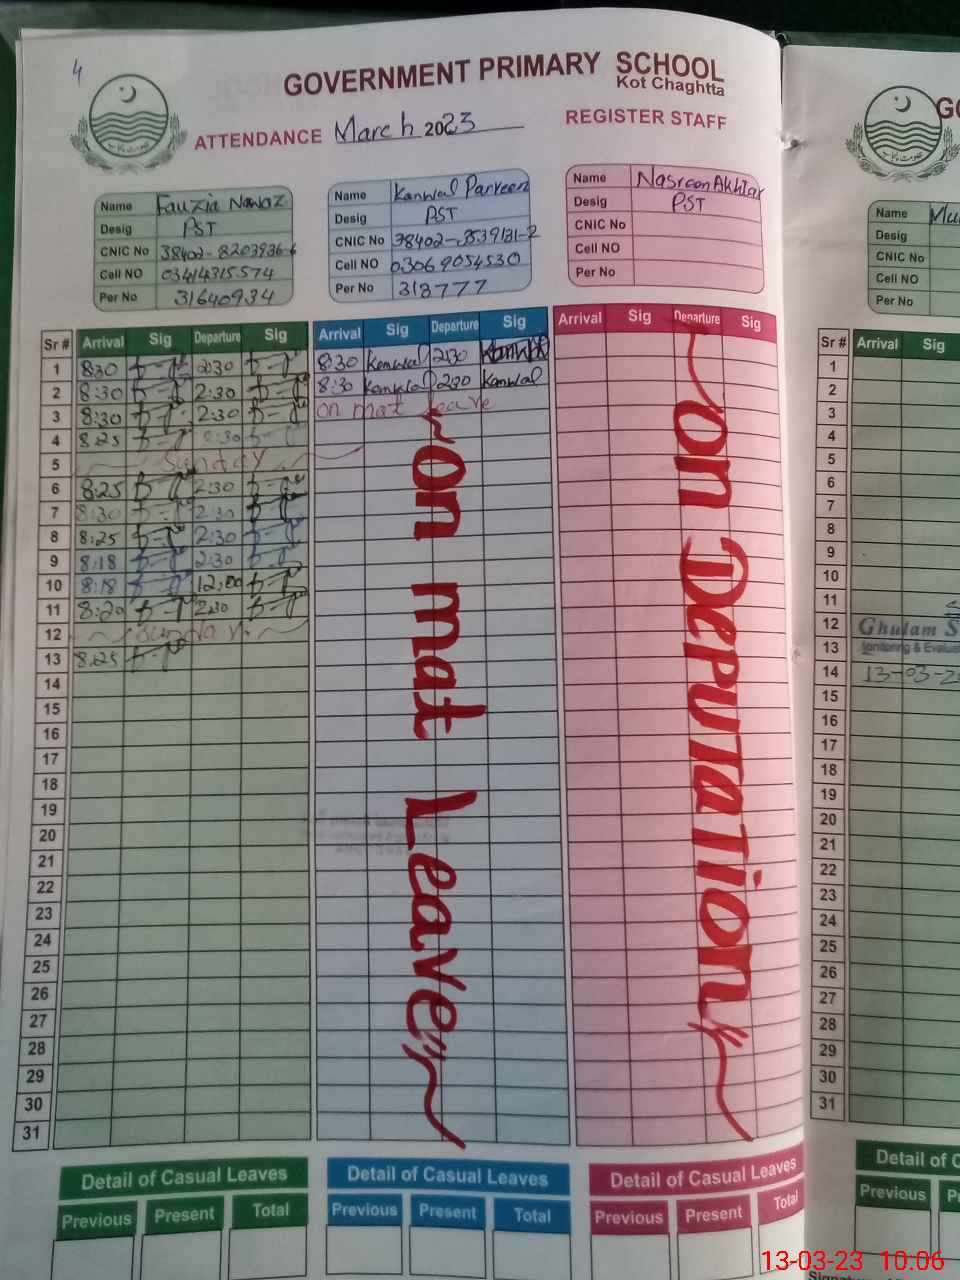 4
GOVERNMENT PRIMARY SCHOOL
Kot Chaghtta
ATTENDANCE March 2023 REGISTER STAFF
Name Fauzia Nawaz
Desig PST
CNIC No 38402-8203936-6
Cell NO 03414315574
Per No 31640934
Name Kanwal Parveen
Desig PST
CNIC No 38402-3539131-2
Cell NO 03069054530
Per No 318777
Name Nasreen Akhtar
Desig PST
CNIC No
Cell NO
Per No
Name
Desig
CNIC No
Cell NO
Per No
Sr # Arrival Sig Departure Sig Arrival Sig Departure Sig Arrival Sig Departure Sig
1 8:30 2:30 8:30 Kanwal 2:30 Kanwal
2 8:30 2:30 8:30 Kanwal 2:30 Kanwal
3 8:30 2:30 on mat leave
4 8:25 2:30
5 Sunday
6 8:25 2:30
7 8:30 2:30
8 8:25 2:30
9 8:18 2:30
10 8:18 12:00
11 8:20 2:30
12 Sunday
13 8:25
14
15
16
17
18
19
20
21
22
23
24
25
26
27
28
29
30
31
On mat Leave
On Deputation
Detail of Casual Leaves
Previous Present Total
Detail of Casual Leaves
Previous Present Total
Detail of Casual Leaves
Previous Present Total
Sr # Arrival Sig
1
2
3
4
5
6
7
8
9
10
11
12 Ghulam
13 Monitoring &
14 13-03-2
15
16
17
18
19
20
21
22
23
24
25
26
27
28
29
30
31
Detail of
Previous
13-03-23 10:06